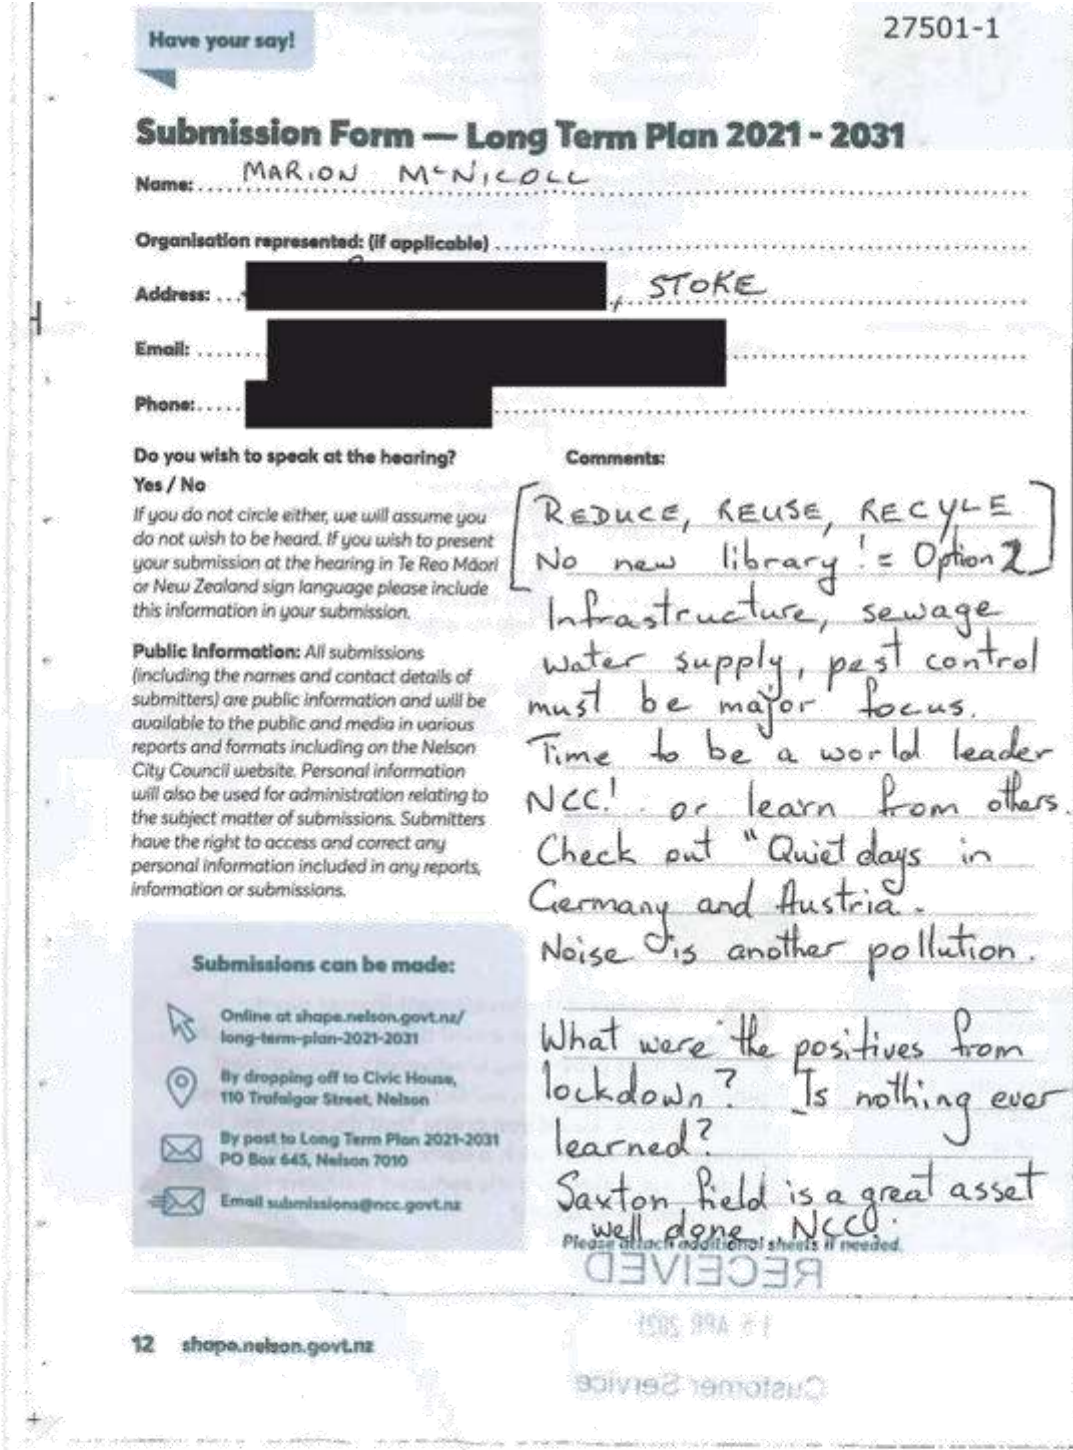 27501-1
Have your say!
Submission Form — Long Term Plan 2021 - 2031
Name: MARION McNICOLL
Organisation represented: (if applicable)
Address: , STOKE
Email:
Phone:
Do you wish to speak at the hearing?
Yes / No
If you do not circle either, we will assume you
do not wish to be heard. If you wish to present
your submission at the hearing in Te Reo Māori
or New Zealand sign language please include
this information in your submission.
Public Information: All submissions
(including the names and contact details of
submitters) are public information and will be
available to the public and media in various
reports and formats including on the Nelson
City Council website. Personal information
will also be used for administration relating to
the subject matter of submissions. Submitters
have the right to access and correct any
personal information included in any reports,
information or submissions.
Submissions can be made:
Online at shape.nelson.govt.nz/
long-term-plan-2021-2031
By dropping off to Civic House,
110 Trafalgar Street, Nelson
By post to Long Term Plan 2021-2031
PO Box 645, Nelson 7010
Email submissions@ncc.govt.nz
Comments:
[REDUCE, REUSE, RECYLE
No new library! = Option 2]
Infrastructure, sewage
water supply, pest control
must be major focus.
Time to be a world leader
NCC! or learn from others.
Check out "Quiet days in
Germany and Austria.
Noise is another pollution.
What were the positives from
lockdown? Is nothing ever
learned?
Saxton field is a great asset
well done NCC.
Please attach additional sheets if needed.
RECEIVED
15 APR 2021
Customer Service
12 shape.nelson.govt.nz